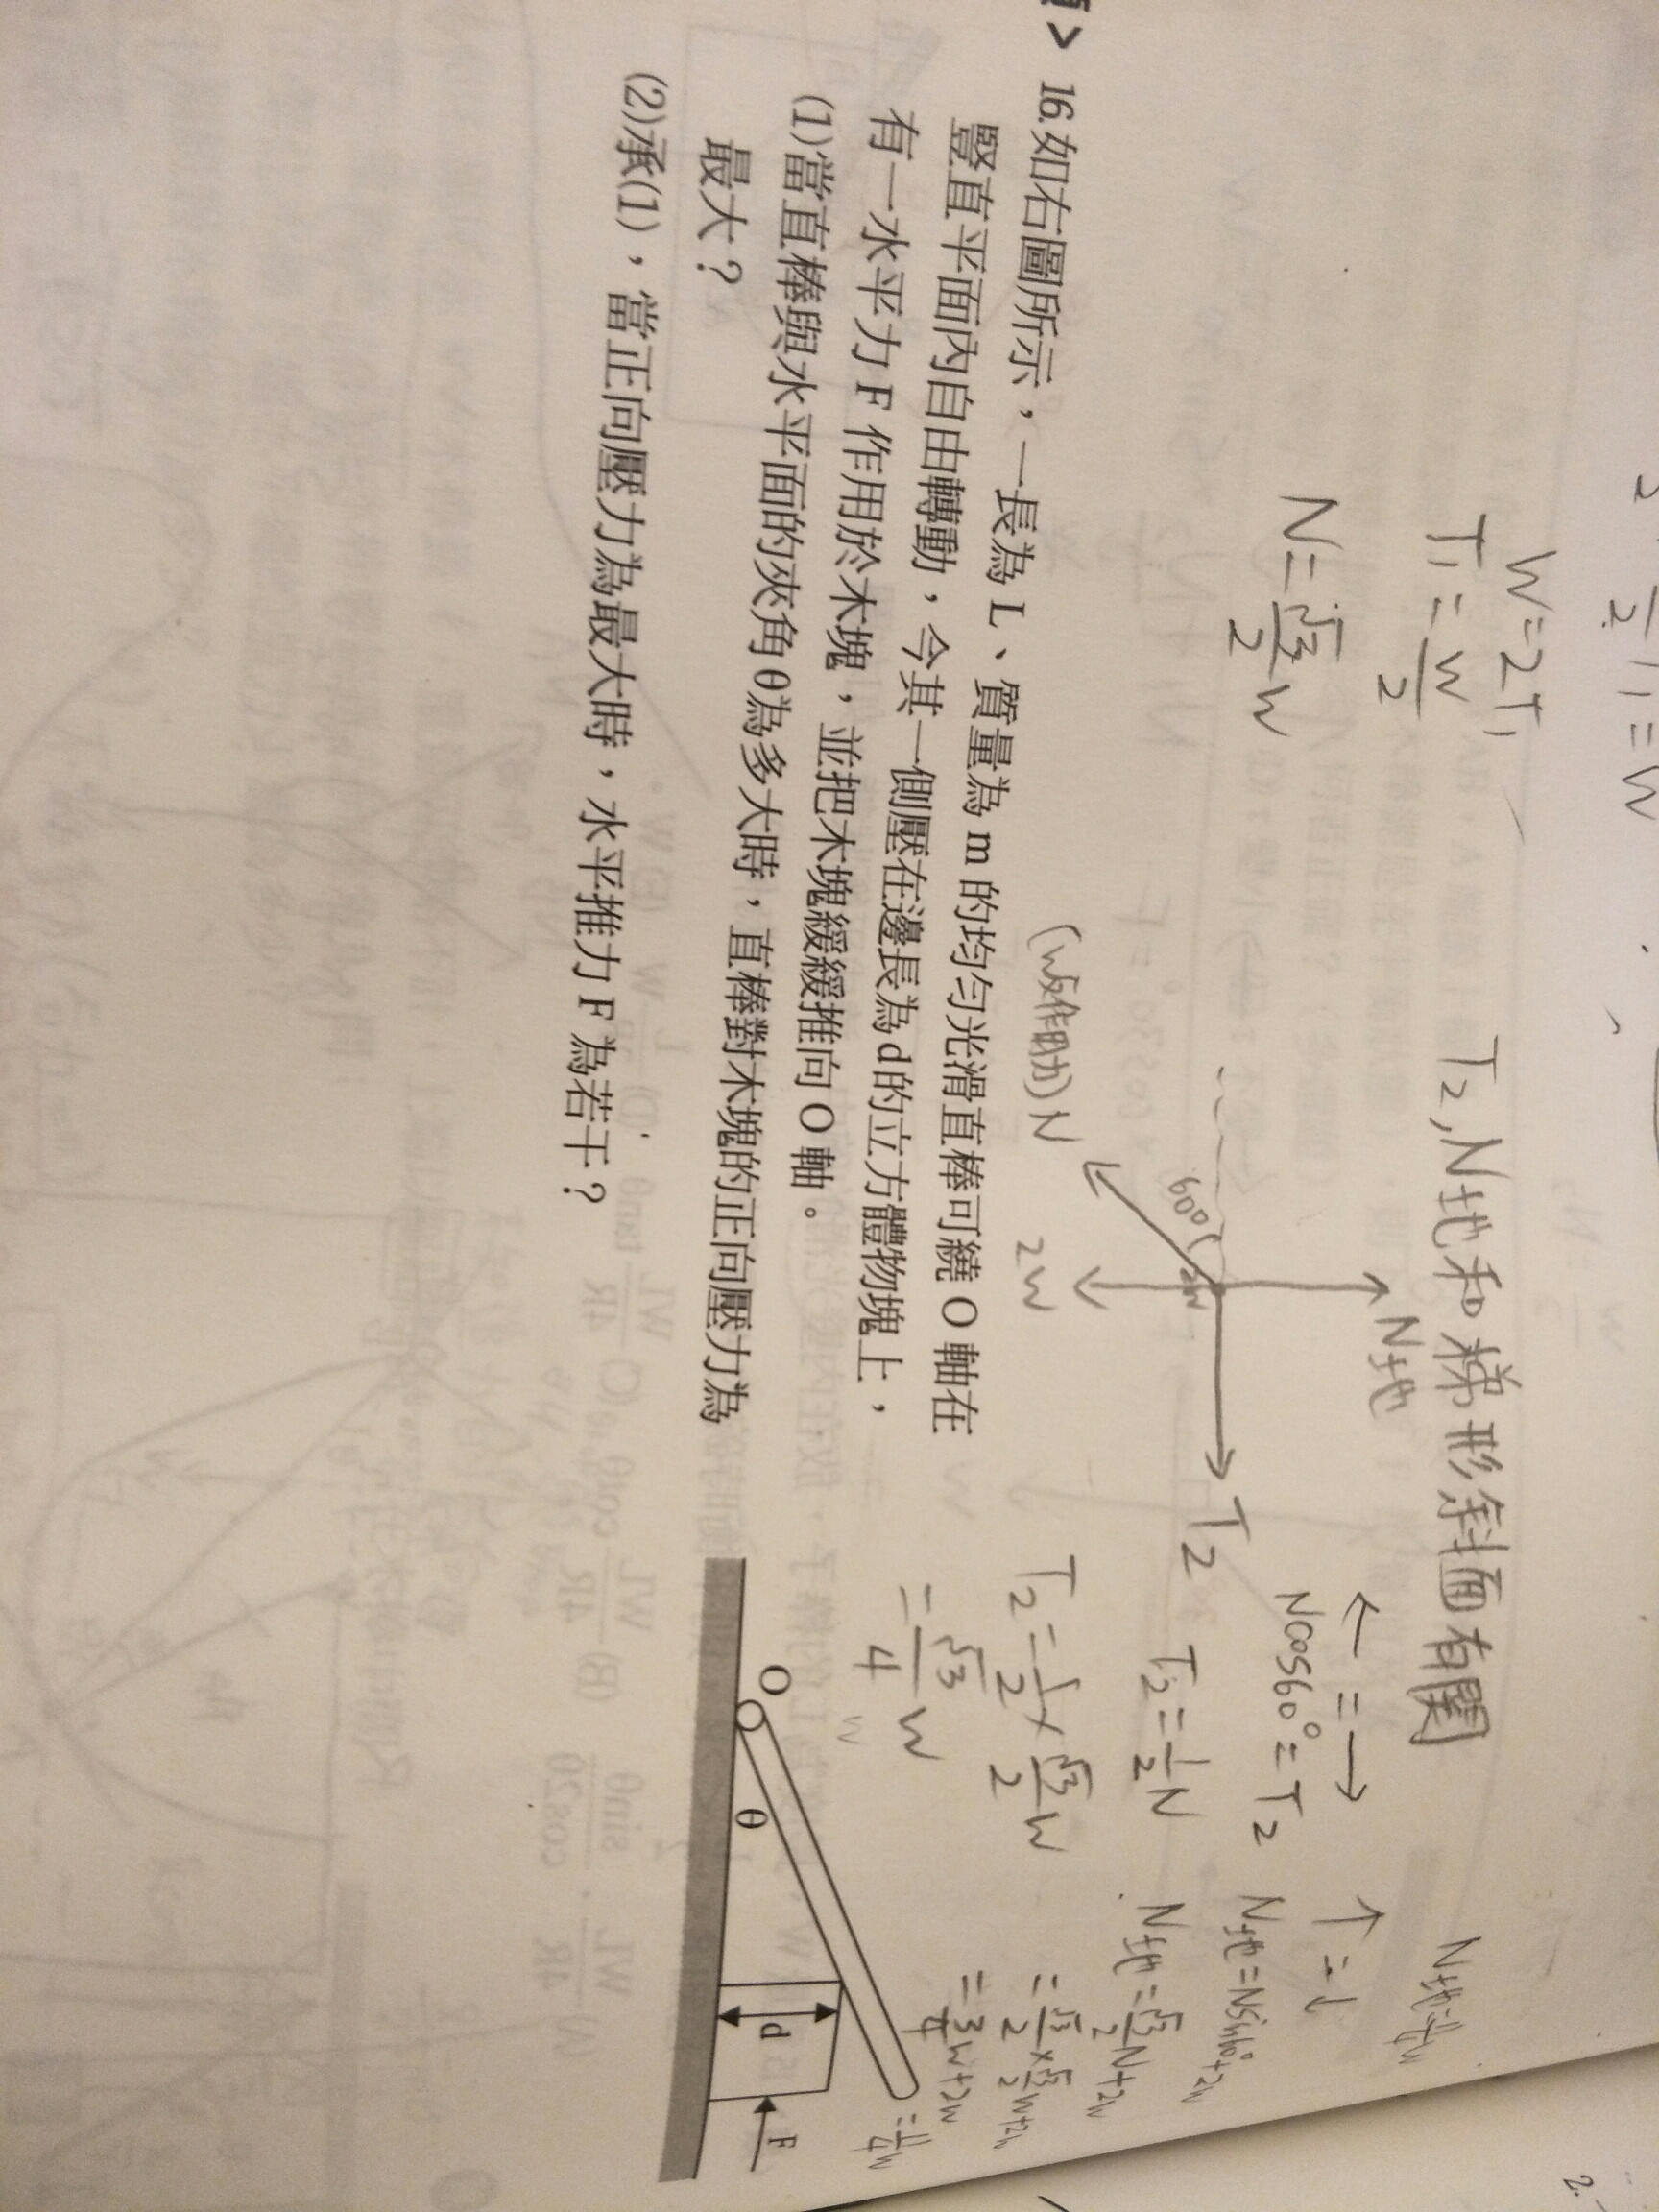 W=2T₁
T₁=W/2
N=√3/2 W
T₂,N地和梯形斜面有關
N地
(W反作用力)N
60°
2W
T₂
← = →
Ncos60°=T₂
T₂=1/2 N
T₂=1/2×√3/2 W
=√3/4 W
↑=↓
N地=Nsin60°+2W
N地=√3/2 N+2W
=√3/2×√3/2 W+2W
=3/4 W+2W
=11/4 W
N地=11/4 W
16.如右圖所示,一長為 L、質量為 m 的均勻光滑直棒可繞 O 軸在
豎直平面內自由轉動,今其一側壓在邊長為d的立方體物塊上,
有一水平力 F 作用於木塊,並把木塊緩緩推向 O 軸。
(1)當直棒與水平面的夾角θ為多大時,直棒對木塊的正向壓力為
最大?
(2)承(1),當正向壓力為最大時,水平推力 F 為若干?
O
θ
d
F